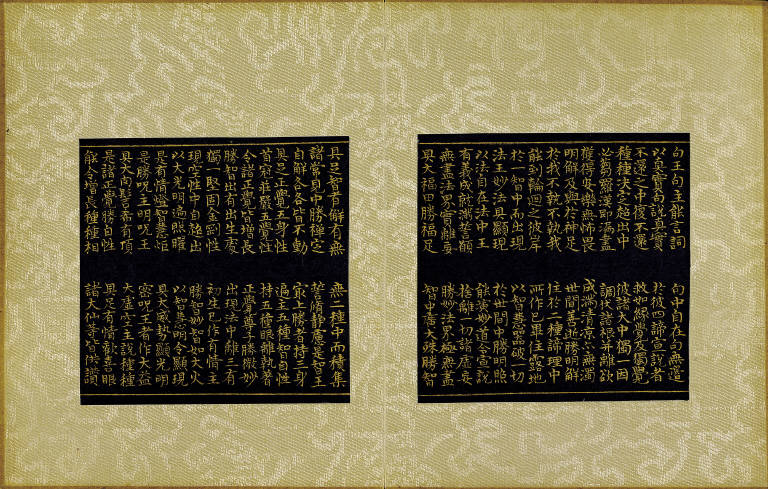 句王句主能言詞
句中自在句無邊
以真實句說真實
於彼四諦宣說者
不還之中復不還
教如緣覺及獨覺
種種決定超出中
彼諸大中獨一因
苾芻羅漢即漏盡
調伏諸根并離欲
獲得安樂無怖畏
成滿清涼亦無濁
明解及與於神足
世間善逝勝明解
於我不執不執我
住於二種諦理中
能到輪迴之彼岸
所作已畢住露地
於一智中而出現
以智慧器破一切
法王妙法具顯現
於世間中勝明照
以法自在法中王
能演妙道令宣說
有義成就滿誓願
捨離一切諸虛妄
無盡法界實離妄
勝妙法界極無盡
具大福田勝福足
智中廣大殊勝智
具足智有解有無
無二種中而積集
諸常見中勝禪定
誓修靜慮是智王
自解各各皆不動
最上勝者持三身
具足正覺五身性
遍主五種智自性
首冠莊嚴五覺性
持五種眼離執著
令諸正覺皆增長
正覺尊子勝微妙
勝智出有出生處
出現法中離三有
獨一堅固金剛性
初生已作有情主
現空性中自超出
勝智妙智如大火
以大光明遍照曜
以智慧明令顯現
是有情燈智慧炬
具大威勢顯光明
是勝咒主明咒王
密咒王者作大益
具大肉髻希有頂
大虛空主說種種
是諸正覺勝自性
具足有情歡喜眼
能令增長種種相
諸大仙等皆供讚